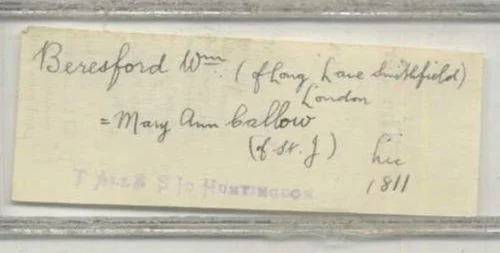 Beresford Wm (of Long Lane Smithfield)
London
= Mary Ann Callow
(of St. J) Lic
1811
HUNTINGDON